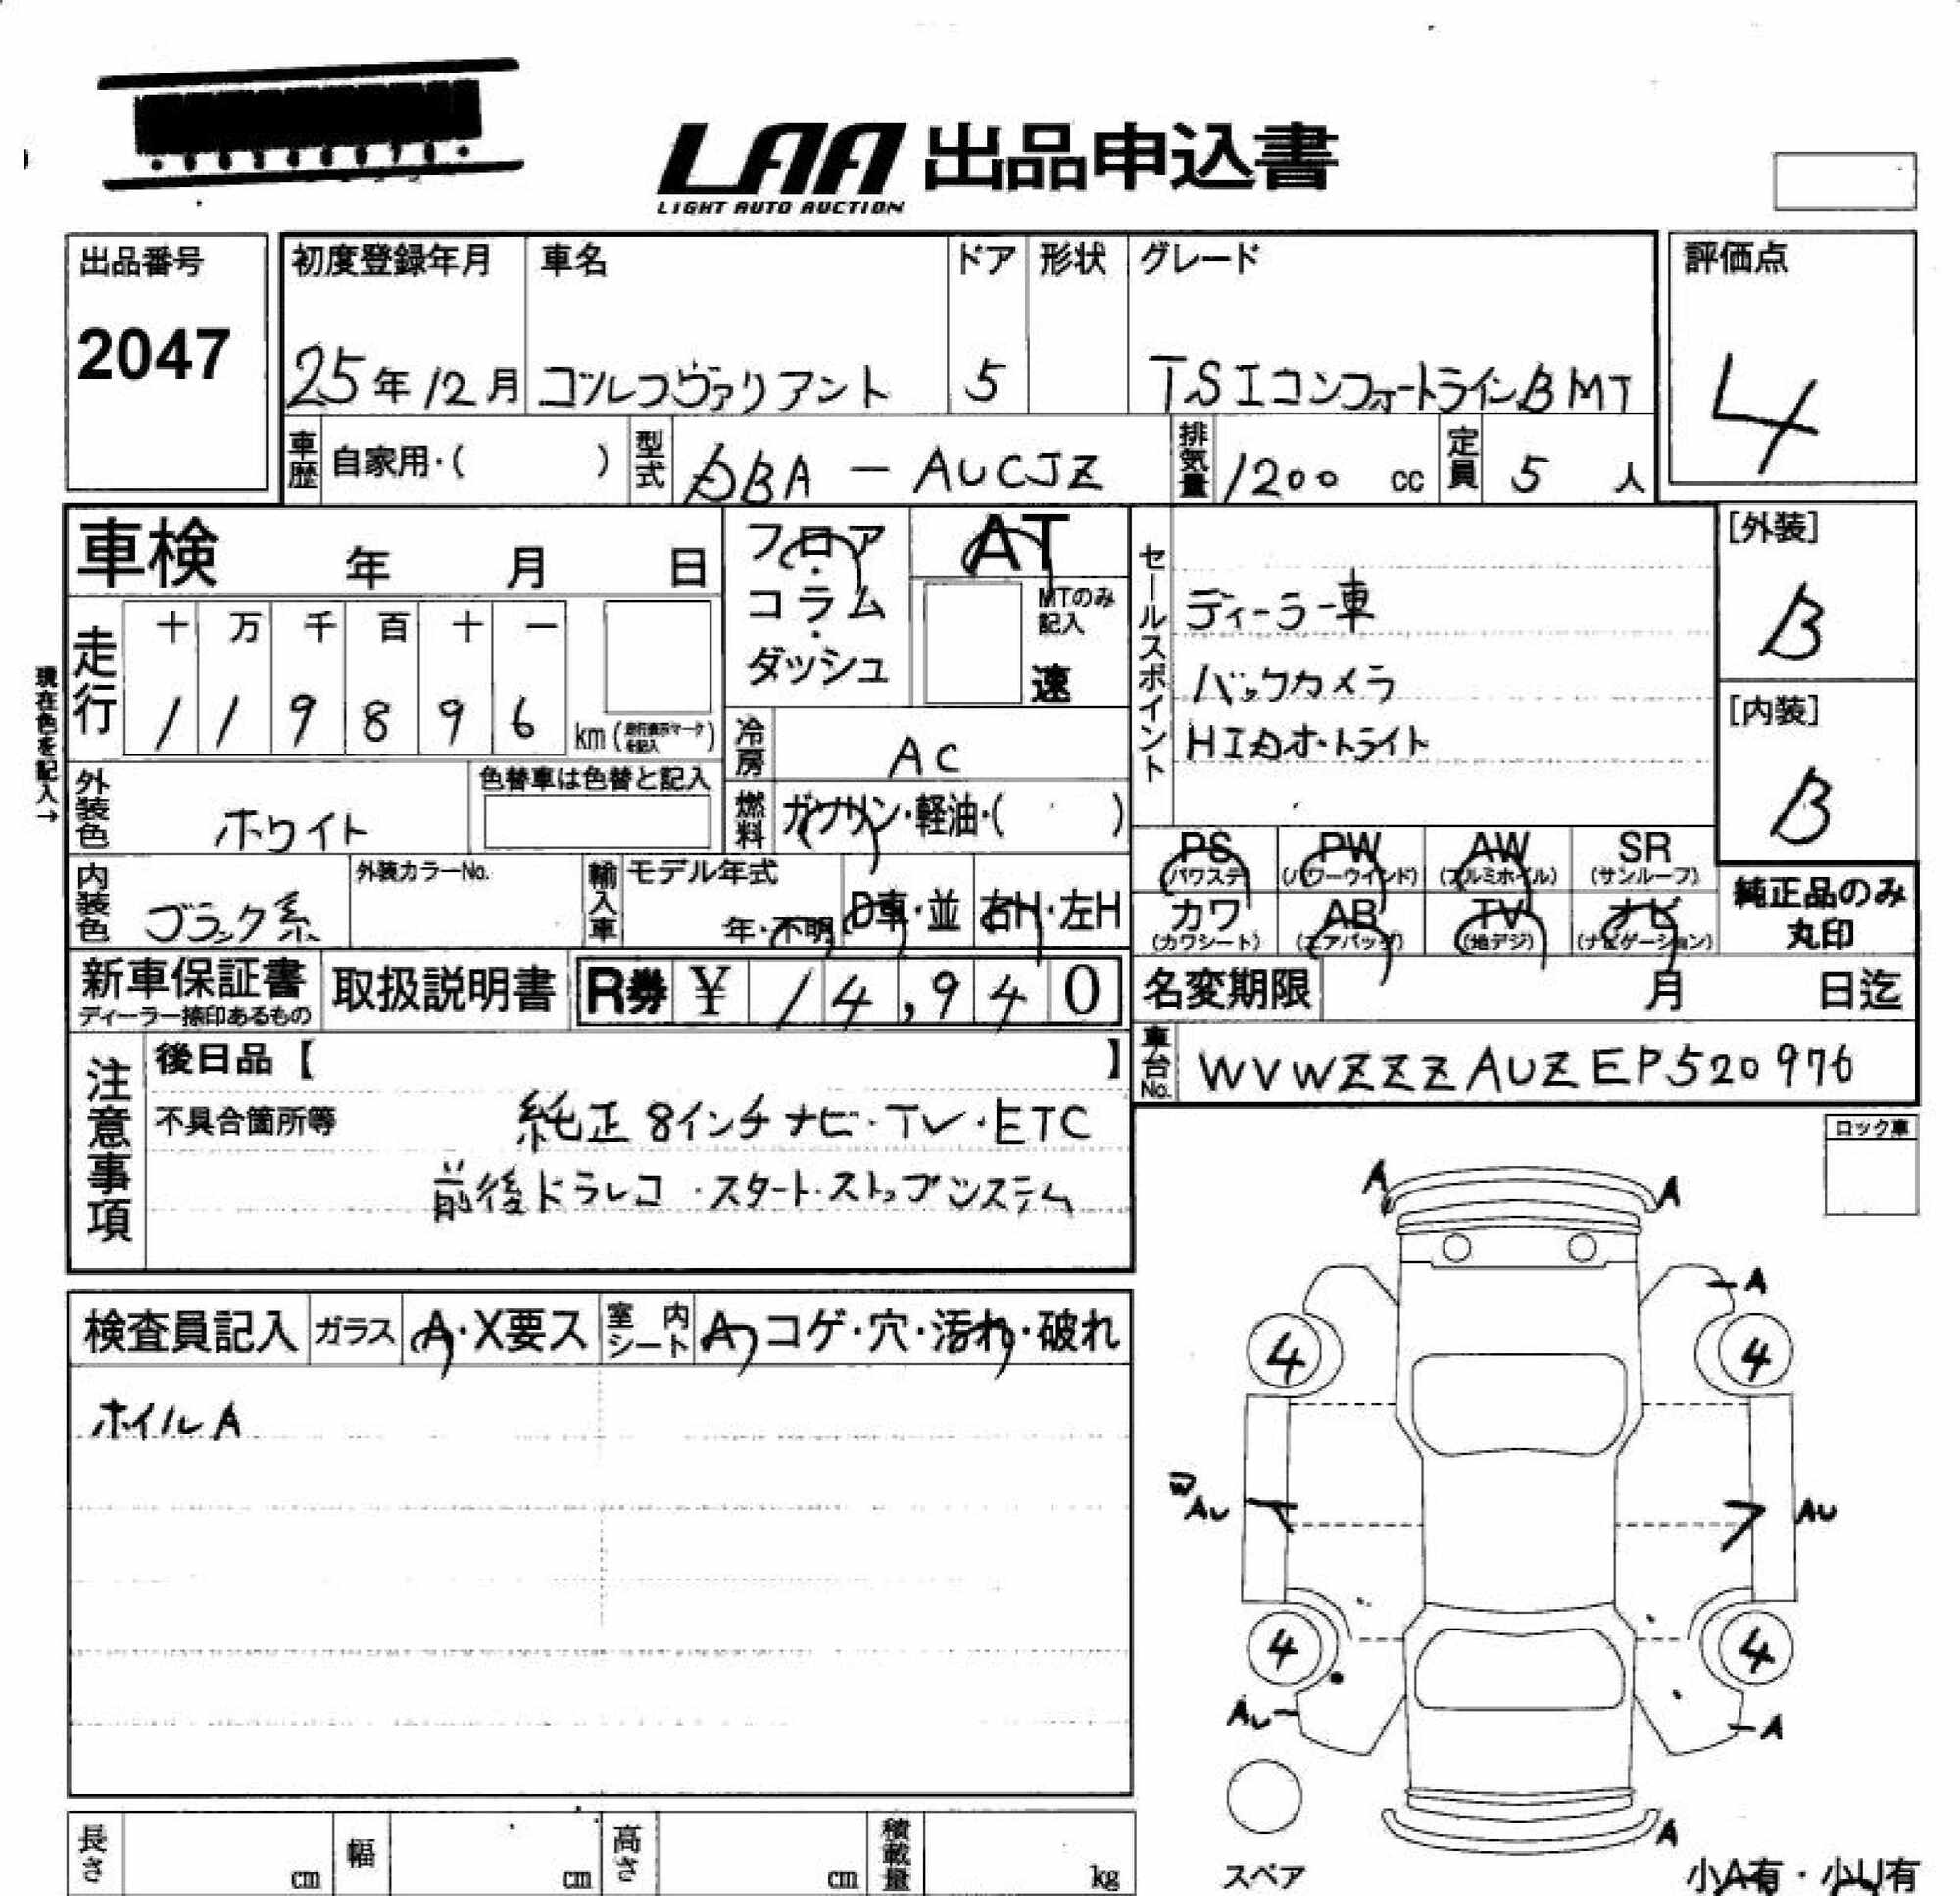 LAA 出品申込書
LIGHT AUTO AUCTION
出品番号
2047
初度登録年月
25年12月
車名
ゴルフヴァリアント
ドア
5
形状
グレード
TSIコンフォートラインBMT
評価点
4
車歴 自家用・( )
型式 DBA - AUCJZ
排気量 1200 cc
定員 5 人
車検 年 月 日
走行
十 万 千 百 十 一
1 1 9 8 9 6 km (走行表示マークを記入)
現在色を記入→
フロア・コラム・ダッシュ
AT
MTのみ記入
速
冷房 AC
燃料 ガソリン・軽油・( )
外装色 ホワイト
色替車は色替と記入
内装色 ブラック系
外装カラーNo.
輸入車 モデル年式
年・不明
D車・並
右H・左H
セールスポイント
ディーラー車
バックカメラ
HIDオートライト
[外装]
B
[内装]
B
PS (パワステ)
PW (パワーウインド)
AW (アルミホイル)
SR (サンルーフ)
カワ (カワシート)
AB (エアバッグ)
TV (地デジ)
ナビ (ナビゲーション)
純正品のみ
丸印
新車保証書
ディーラー捺印あるもの
取扱説明書
R券 ¥ 14,940
名変期限 月 日迄
車台No. WVWZZZAUZEP520976
注意事項
後日品【 】
不具合箇所等
純正8インチナビ・TV・ETC
前後ドラレコ・スタート・ストップシステム
ロック車
検査員記入
ガラス A・X要ス
室内シート A・コゲ・穴・汚れ・破れ
ホイルA
A A
A
4 4
W
AU AU
4 4
AU A
A
スペア
小A有・小U有
長さ cm
幅 cm
高さ cm
積載量 kg